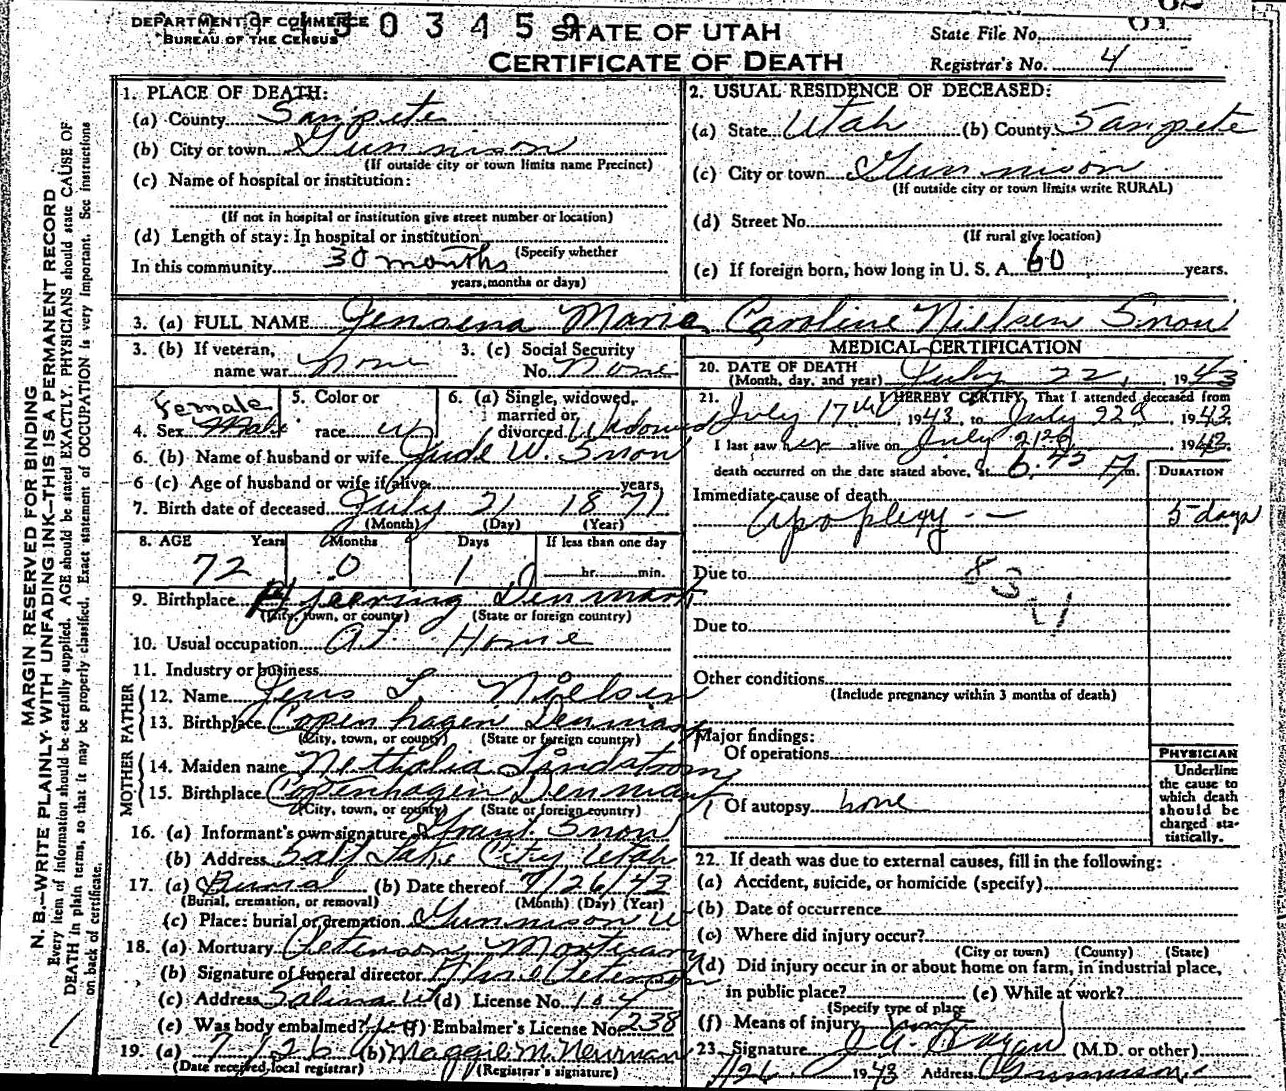 DEPARTMENT OF COMMERCE
BUREAU OF THE CENSUS
303459
STATE OF UTAH
CERTIFICATE OF DEATH
State File No.
Registrar's No. 4
MARGIN RESERVED FOR BINDING
N. B.—WRITE PLAINLY WITH UNFADING INK—THIS IS A PERMANENT RECORD
Every item of information should be carefully supplied. AGE should be stated EXACTLY. PHYSICIANS should state CAUSE OF
DEATH in plain terms, so that it may be properly classified. Exact statement of OCCUPATION is very important. See instructions
on back of certificate.
1. PLACE OF DEATH:
(a) County Sanpete
(b) City or town Gunnison
(If outside city or town limits name Precinct)
(c) Name of hospital or institution:
(If not in hospital or institution give street number or location)
(d) Length of stay: In hospital or institution
(Specify whether
In this community 30 months
years, months or days)
2. USUAL RESIDENCE OF DECEASED:
(a) State Utah (b) County Sanpete
(c) City or town Gunnison
(If outside city or town limits write RURAL)
(d) Street No.
(If rural give location)
(e) If foreign born, how long in U. S. A. 60 years.
3. (a) FULL NAME Jensena Marie Caroline Nielsen Snow
3. (b) If veteran, name war none
3. (c) Social Security No. None
4. Sex Female Male
5. Color or race W
6. (a) Single, widowed, married or divorced Widowed
6. (b) Name of husband or wife Jude W. Snow
6 (c) Age of husband or wife if alive years
7. Birth date of deceased July 21 1871
(Month) (Day) (Year)
8. AGE Years Months Days If less than one day
72 0 1 hr. min.
9. Birthplace Hjoerring Denmark
(City, town, or county) (State or foreign country)
10. Usual occupation At Home
11. Industry or business
FATHER
12. Name Jens L. Nielsen
13. Birthplace Copenhagen Denmark
(City, town, or county) (State or foreign country)
MOTHER
14. Maiden name Nethalia Lindstrom
15. Birthplace Copenhagen Denmark
(City, town, or county) (State or foreign country)
16. (a) Informant's own signature Grant Snow
(b) Address Salt Lake City Utah
17. (a) Burial (b) Date thereof 7/26/43
(Burial, cremation, or removal) (Month) (Day) (Year)
(c) Place: burial or cremation Gunnison U
18. (a) Mortuary Peterson Mortuary
(b) Signature of funeral director Peterson
(c) Address Salina Ut (d) License No. 104
(e) Was body embalmed? (f) Embalmer's License No. 238
19. (a) 7/26 (b) Maggie M. Newman
(Date received local registrar) (Registrar's signature)
MEDICAL CERTIFICATION
20. DATE OF DEATH
(Month, day, and year) July 22, 1943
21. I HEREBY CERTIFY, That I attended deceased from
July 17th 1943, to July 22d, 1943.
I last saw her alive on July 21st 1943
death occurred on the date stated above, at m.
DURATION
Immediate cause of death
Apoplexy -- 5 days
Due to
Due to
Other conditions
(Include pregnancy within 3 months of death)
Major findings:
Of operations
Of autopsy none
PHYSICIAN
Underline
the cause to
which death
should be
charged sta-
tistically.
22. If death was due to external causes, fill in the following:
(a) Accident, suicide, or homicide (specify)
(b) Date of occurrence
(c) Where did injury occur?
(City or town) (County) (State)
(d) Did injury occur in or about home on farm, in industrial place,
in public place? (e) While at work?
(Specify type of place
(f) Means of injury
23. Signature J. A. Hagan (M.D. or other)
7/26 1943 Address Gunnison